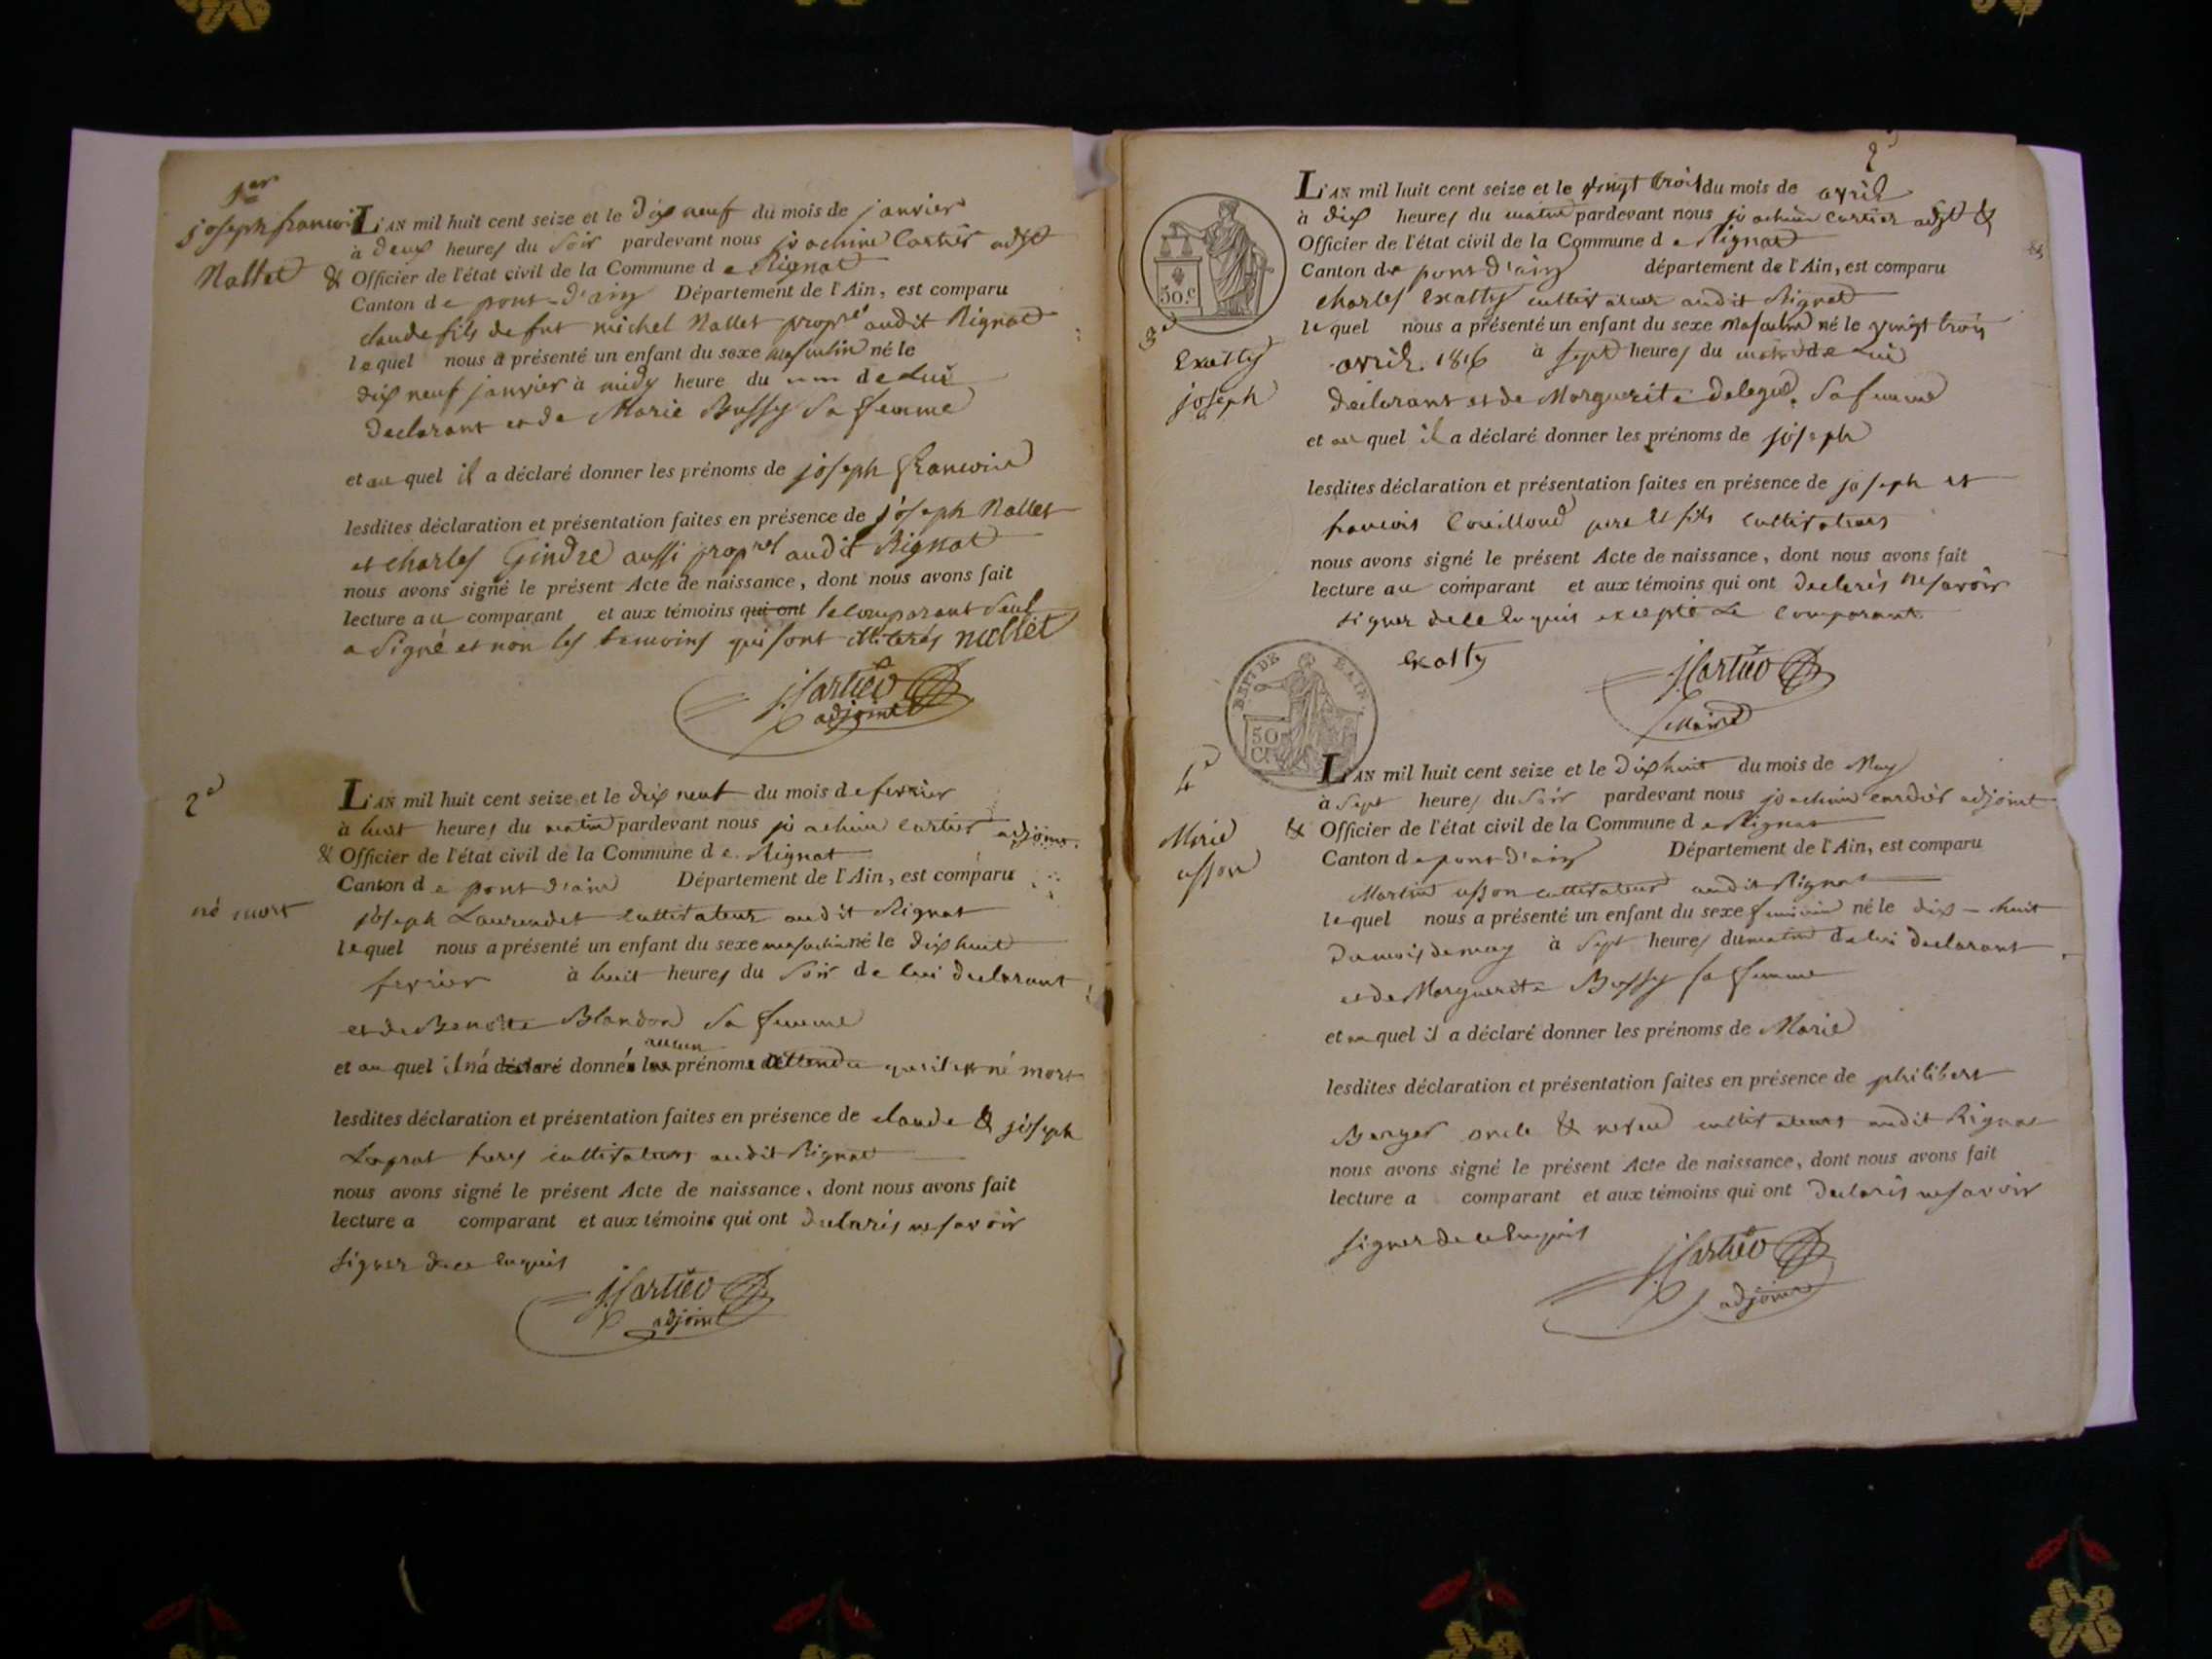 1er
joseph francois
Nallet
L'AN mil huit cent seize et le dix neuf du mois de janvier
à deux heures du soir pardevant nous joachim Cartier adjt
& Officier de l'état civil de la Commune de Rignat
Canton de pont-d'ain Département de l'Ain, est comparu
claude fils de fut michel Nallet propre audit Rignat
lequel nous a présenté un enfant du sexe masculin né le
dix neuf janvier à midy heure du de Lui
declarant et de Marie Bussy Sa femme
et au quel il a déclaré donner les prénoms de joseph francois
lesdites déclaration et présentation faites en présence de joseph Nallet
et charles Gindre aussi propres audit Rignat
nous avons signé le présent Acte de naissance, dont nous avons fait
lecture au comparant et aux témoins qui ont le comparant seul
a Signé et non les temoins qui sont illiterés nallet
j. Cartier
adjoint
2e
né mort
L'AN mil huit cent seize et le dix neuf du mois de fevrier
à huit heures du matin pardevant nous joachim Cartier adjoint
& Officier de l'état civil de la Commune de Rignat
Canton de pont d'ain Département de l'Ain, est comparu
joseph Laurendet cultivateur audit Rignat
lequel nous a présenté un enfant du sexe masculin né le dix huit
fevrier à huit heures du Soir de lui declarant
et de Benoite Blandon Sa femme
aucun
et au quel il n'a déclaré donnés les prénoms attendu qu'il est né mort
lesdites déclaration et présentation faites en présence de claude & joseph
Laprat freres cultivateurs audit Rignat
nous avons signé le présent Acte de naissance, dont nous avons fait
lecture a comparant et aux témoins qui ont declarés ne savoir
signer de ce enquis
j. Cartier
adjoint
2
L'AN mil huit cent seize et le vingt trois du mois de avril
à dix heures du matin pardevant nous joachim Cartier adjt &
Officier de l'état civil de la Commune de Rignat
Canton de pont d'ain département de l'Ain, est comparu
charles Exatty cultivateur audit Rignat
lequel nous a présenté un enfant du sexe masculin né le vingt trois
avril 1816 à sept heures du matin de Lui
declarant et de Marguerite Sa femme
et au quel il a déclaré donner les prénoms de joseph
lesdites déclaration et présentation faites en présence de joseph et
francois Couilloud pere et fils Cultivateurs
nous avons signé le présent Acte de naissance, dont nous avons fait
lecture au comparant et aux témoins qui ont declarés ne savoir
signer de ce enquis excepté Le Comparant
30.C
3e
Exatty
joseph
Exatty
j. Cartier
Maire
50
C.
4e
Marie
usson
L'AN mil huit cent seize et le dix huit du mois de May
à Sept heures du Soir pardevant nous joachim cartier adjoint
& Officier de l'état civil de la Commune de Rignat
Canton de pont d'ain Département de l'Ain, est comparu
Martin usson cultivateur audit Rignat
lequel nous a présenté un enfant du sexe feminin né le dix-huit
du mois de may à Sept heures du matin de lui declarant
et de Marguerite Bussy sa femme
et au quel il a déclaré donner les prénoms de Marie
lesdites déclaration et présentation faites en présence de philibert
Berger oncle & neveu cultivateurs audit Rignat
nous avons signé le présent Acte de naissance, dont nous avons fait
lecture a comparant et aux témoins qui ont declarés ne savoir
signer de ce enquis
j. Cartier
adjoint